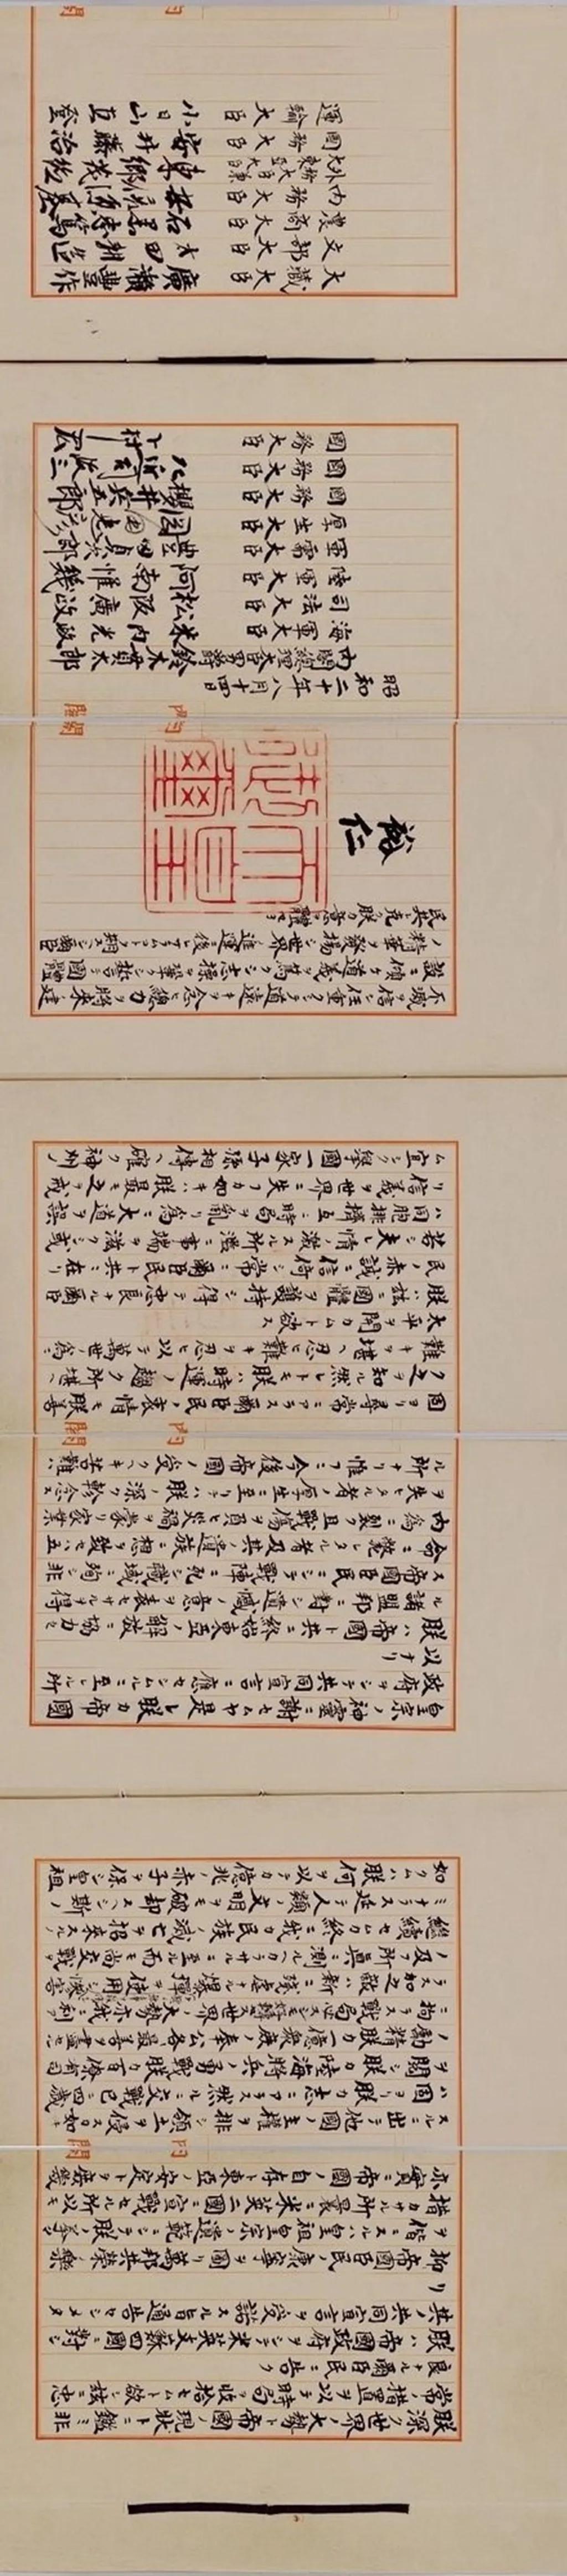 朕深ク世界ノ大勢ト帝國ノ現狀トニ鑑ミ非
常ノ措置ヲ以テ時局ヲ收拾セムト欲シ茲ニ忠
良ナル爾臣民ニ告ク
朕ハ帝國政府ヲシテ米英支蘇四國ニ對シ
其ノ共同宣言ヲ受諾スル旨通告セシメタ
リ
抑〻帝國臣民ノ康寧ヲ圖リ萬邦共榮ノ樂
ヲ偕ニスルハ皇祖皇宗ノ遺範ニシテ朕ノ拳〻
措カサル所曩ニ米英二國ニ宣戰セル所以モ
亦實ニ帝國ノ自存ト東亞ノ安定トヲ庶幾
スルニ出テ他國ノ主權ヲ排シ領土ヲ侵スカ如キ
ハ固ヨリ朕カ志ニアラス然ルニ交戰已ニ四歲
ヲ閲シ朕カ陸海將兵ノ勇戰朕カ百僚有司
ノ勵精朕カ一億衆庶ノ奉公各〻最善ヲ盡セル
ニ拘ラス戰局必スシモ好轉セス世界ノ大勢亦我ニ利ア
ラス加之敵ハ新ニ殘虐ナル爆彈ヲ使用シテ頻ニ無辜ヲ殺傷シ慘害
ノ及フ所眞ニ測ルヘカラサルニ至ル而モ尚交戰ヲ
繼續セムカ終ニ我カ民族ノ滅亡ヲ招來スル
ノミナラス延テ人類ノ文明ヲモ破却スヘシ斯ノ
如クムハ朕何ヲ以テカ億兆ノ赤子ヲ保シ皇祖
皇宗ノ神靈ニ謝セムヤ是レ朕カ帝國
政府ヲシテ共同宣言ニ應セシムルニ至レル所
以ナリ
朕ハ帝國ト共ニ終始東亞ノ解放ニ協力セ
ル諸盟邦ニ對シ遺憾ノ意ヲ表セサルヲ得
ス帝國臣民ニシテ戰陣ニ死シ職域ニ殉シ非
命ニ斃レタル者及其ノ遺族ニ想ヲ致セハ五
内爲ニ裂ク且戰傷ヲ負ヒ災禍ヲ蒙リ家業
ヲ失ヒタル者ノ厚生ニ至リテハ朕ノ深ク軫念ス
ル所ナリ惟フニ今後帝國ノ受クヘキ苦難ハ
固ヨリ尋常ニアラス爾臣民ノ衷情モ朕善
ク之ヲ知ル然レトモ朕ハ時運ノ趨ク所堪ヘ
難キヲ堪ヘ忍ヒ難キヲ忍ヒ以テ萬世ノ爲ニ
太平ヲ開カムト欲ス
朕ハ茲ニ國體ヲ護持シ得テ忠良ナル爾臣
民ノ赤誠ニ信倚シ常ニ爾臣民ト共ニ在リ
若シ夫レ情ノ激スル所濫ニ事端ヲ滋クシ或
ハ同胞排擠互ニ時局ヲ亂リ爲ニ大道ヲ誤
リ信義ヲ世界ニ失フカ如キハ朕最モ之ヲ戒
ム宜シク擧國一家子孫相傳ヘ確ク神州ノ
不滅ヲ信シ任重クシテ道遠キヲ念ヒ總力ヲ將來ノ建
設ニ傾ケ道義ヲ篤クシ志操ヲ鞏クシ誓テ國體
ノ精華ヲ發揚シ世界ノ進運ニ後レサラムコトヲ期スヘシ爾臣
民其レ克ク朕カ意ヲ體セヨ
裕仁
天皇御璽
昭和二十年八月十四日
内閣總理大臣男爵 鈴木貫太郎
海軍大臣 米内光政
司法大臣 松阪廣政
陸軍大臣 阿南惟幾
軍需大臣 豊田貞次郎
厚生大臣 岡田忠彦
國務大臣 櫻井兵五郎
國務大臣 左近司政三
國務大臣 下村宏
大藏大臣 廣瀬豊作
文部大臣 太田耕造
農商大臣 石黒忠篤
内務大臣 安倍源基
外務大臣兼大東亞大臣 東郷茂徳
國務大臣 安井藤治
運輸大臣 小日山直登